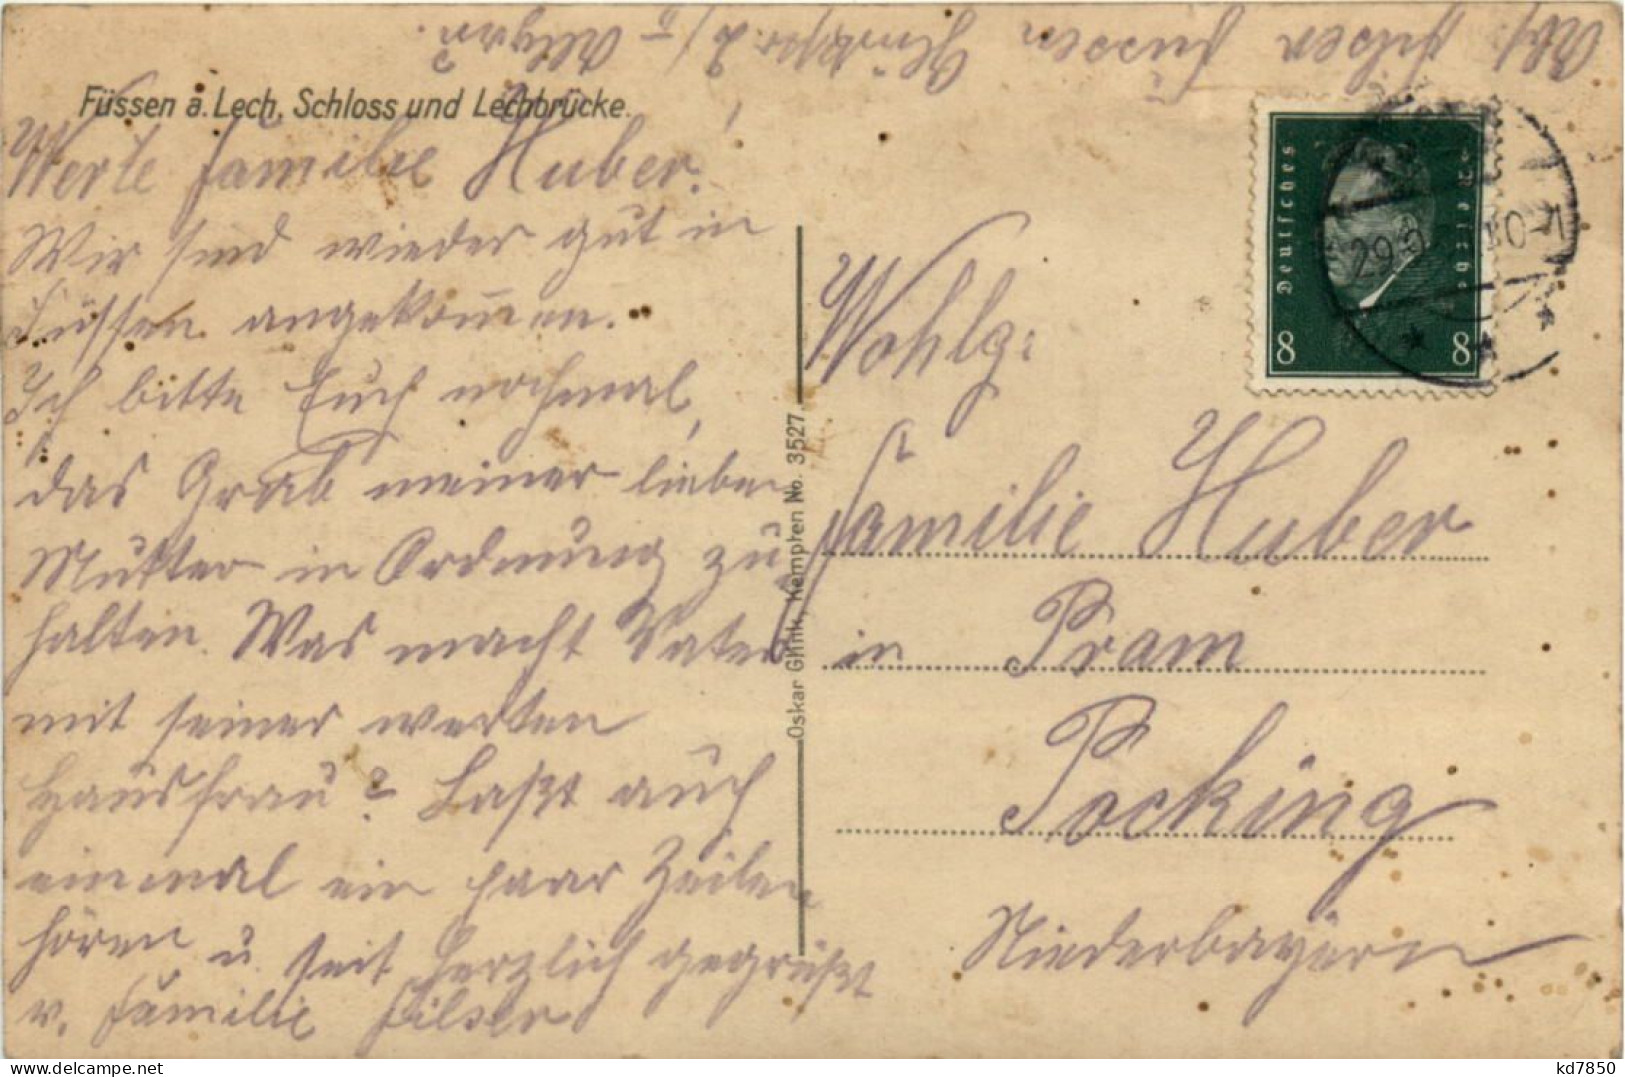 Abs. Filser Füssen
Füssen a. Lech, Schloss und Lechbrücke.
Werte Familie Huber!
Wir sind wieder gut in
Füssen angekom̄en.
Ich bitte Euch nochmal,
das Grab meiner lieben
Mutter in Ordnung zu
halten. Was macht Vater
mit seiner werten
Hausfrau? Laßt auch
einmal ein paar Zeilen
hören u. seit herzlich gegrüßt
v. Familie Filser
Oskar Glink, Kempten No. 3527.
Deutsches Reich
8 8
29.9
Wohlg:
Familie Huber
in Pram
Pocking
Niederbayern
kd7850